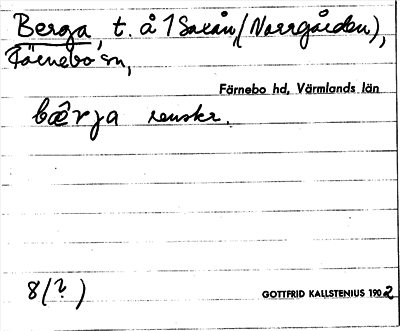 Berga, t. å 1 Saxån, (Norrgården),
Färnebo sn,
Färnebo hd, Värmlands län
bæ̂rja renskr.
8 (?)
GOTTFRID KALLSTENIUS 1902